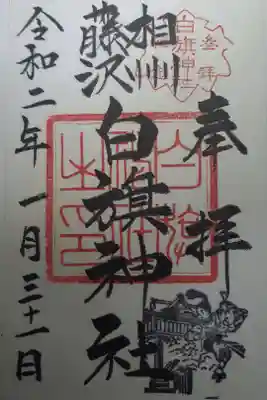 奉拝
相州
藤沢
白旗神社
令和二年一月三十一日
白旗神社